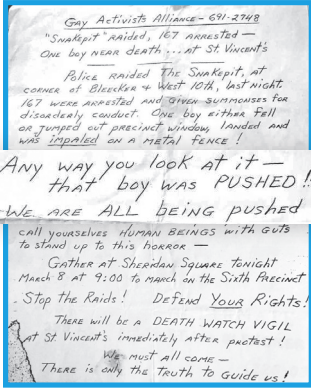 GAY ACTIVISTS ALLIANCE - 691-2748
"SNAKEPIT" RAIDED, 167 ARRESTED —
ONE BOY NEAR DEATH ... AT ST. VINCENT'S
POLICE RAIDED THE SNAKEPIT, AT
CORNER OF BLEECKER & WEST 10th, LAST NIGHT.
167 WERE ARRESTED AND GIVEN SUMMONSES FOR
DISORDERLY CONDUCT. ONE BOY EITHER FELL
OR JUMPED OUT PRECINCT WINDOW, LANDED AND
WAS IMPALED ON A METAL FENCE!
ANY WAY YOU LOOK AT IT —
that BOY WAS PUSHED!!
WE ARE ALL being pushed
CALL YOURSELVES HUMAN BEINGS WITH GUTS
to STAND UP TO THIS HORROR —
GATHER AT SHERIDAN SQUARE TONIGHT
MARCH 8 AT 9:00 TO MARCH ON THE SIXTH PRECINCT
STOP THE RAIDS! DEFEND YOUR RIGHTS!
THERE WILL BE A DEATH WATCH VIGIL
AT ST VINCENT'S IMMEDIATELY AFTER PROTEST!
WE MUST ALL COME —
THERE IS ONLY THE TRUTH TO GUIDE US!